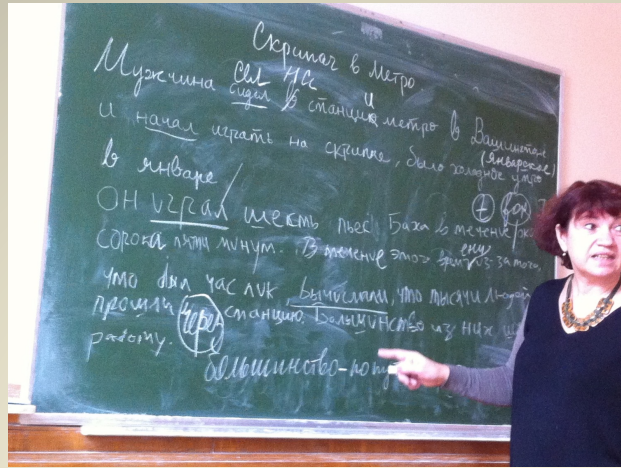 Скрипач в метро
Сел НСС и
Мужчина сидел в станции метро в Вашингтоне
(январское)
и начал играть на скрипке, было холодное утро
в январе
Он играл шесть пьес Баха в течение
сорока пяти минут. В течение этого времени из-за того,
что был час пик, вычислили, что тысячи людей
прошли через станцию. Большинство из них
работу.
большинство